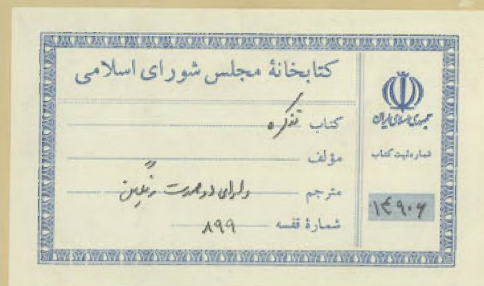 کتابخانهٔ مجلس شورای اسلامی
کتاب تذکره
مؤلف
مترجم دارای دو صورت رنگین
شمارهٔ قفسه ۸۹۹
جمهوری اسلامی ایران
شماره ثبت کتاب
۱۴۹۰۶